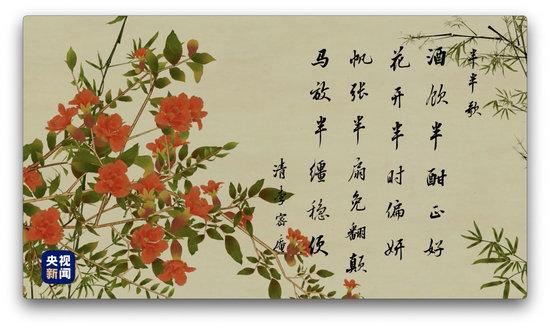 半半歌
酒饮半酣正好
花开半时偏妍
帆张半扇免翻颠
马放半缰稳便
清 李密庵
央视
新闻